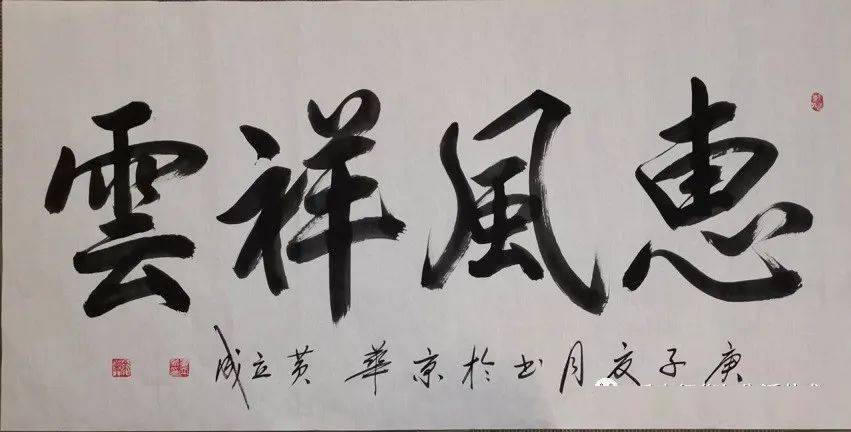 惠風祥雲
庚子夏月书於京華 黄立成